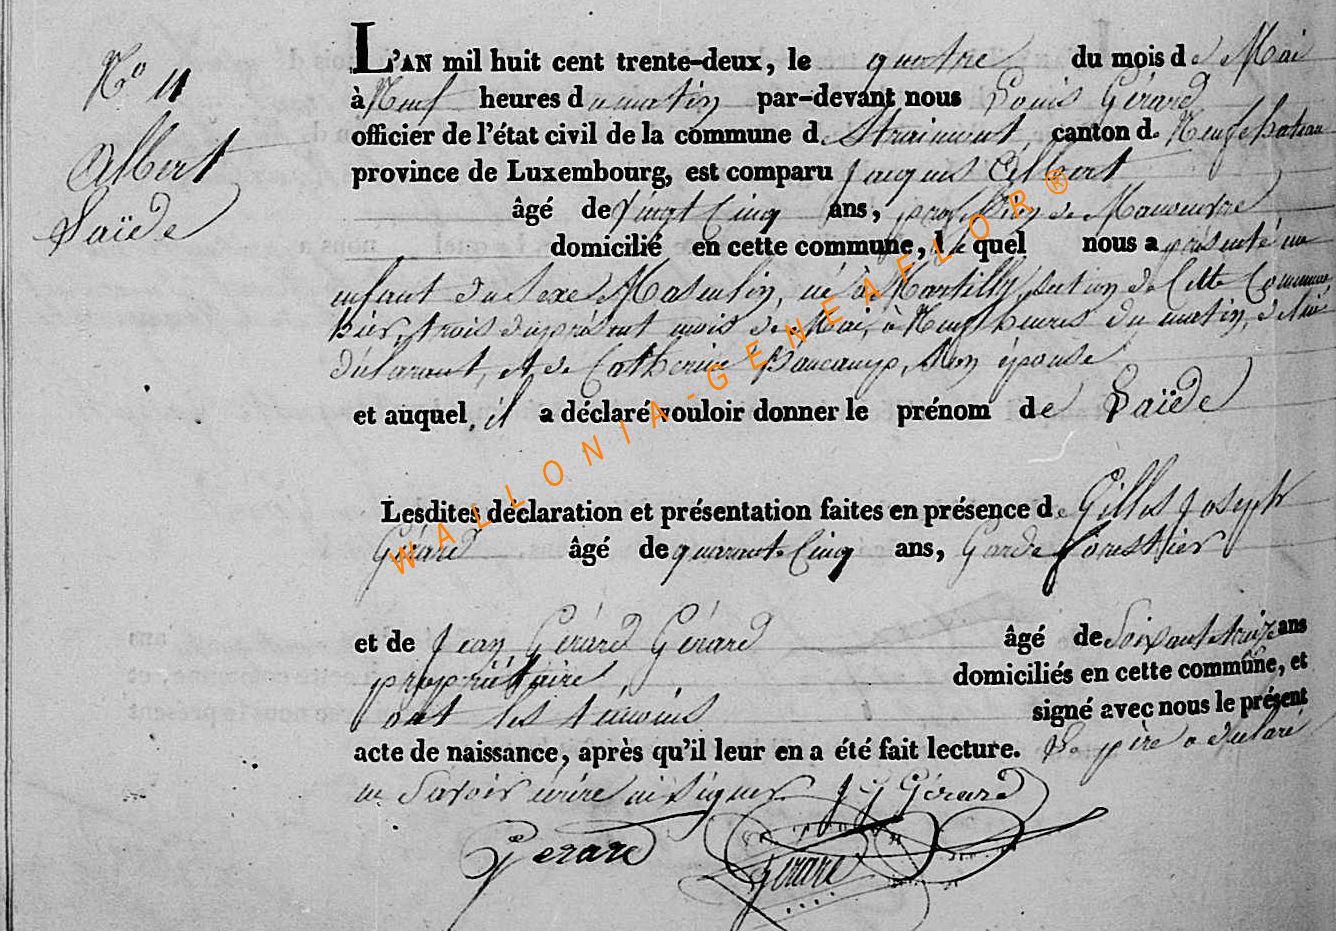 N.º 11
Albert
Saïde
L'AN mil huit cent trente-deux, le quatre du mois de Mai
à Neuf heures du matin par-devant nous Louis Gérard
officier de l'état civil de la commune de Straimont, canton de Neufchateau
province de Luxembourg, est comparu Jacques Albert
âgé de vingt Cinq ans, profession de Manouvre
domicilié en cette commune, lequel nous a présenté un
enfant du sexe Masculin, né à Martilly, section de Cette Commune
hier, trois du présent mois de Mai, à Neuf heures du matin, de lui
déclarant, et de Catherine Paucamp, son épouse
et auquel, il a déclaré vouloir donner le prénom de Saïde
Lesdites déclaration et présentation faites en présence de Gilles Joseph
Gérard âgé de quarante Cinq ans, Garde forestier
et de Jean Gérard Gérard âgé de Soixante treize ans
propriétaire domiciliés en cette commune, et
ont les témoins signé avec nous le présent
acte de naissance, après qu'il leur en a été fait lecture. Le père a déclaré
ne Savoir écrire ni signer. J G Gérard
Gerard
Gerard
WALLONIA-GENEAFLOR®